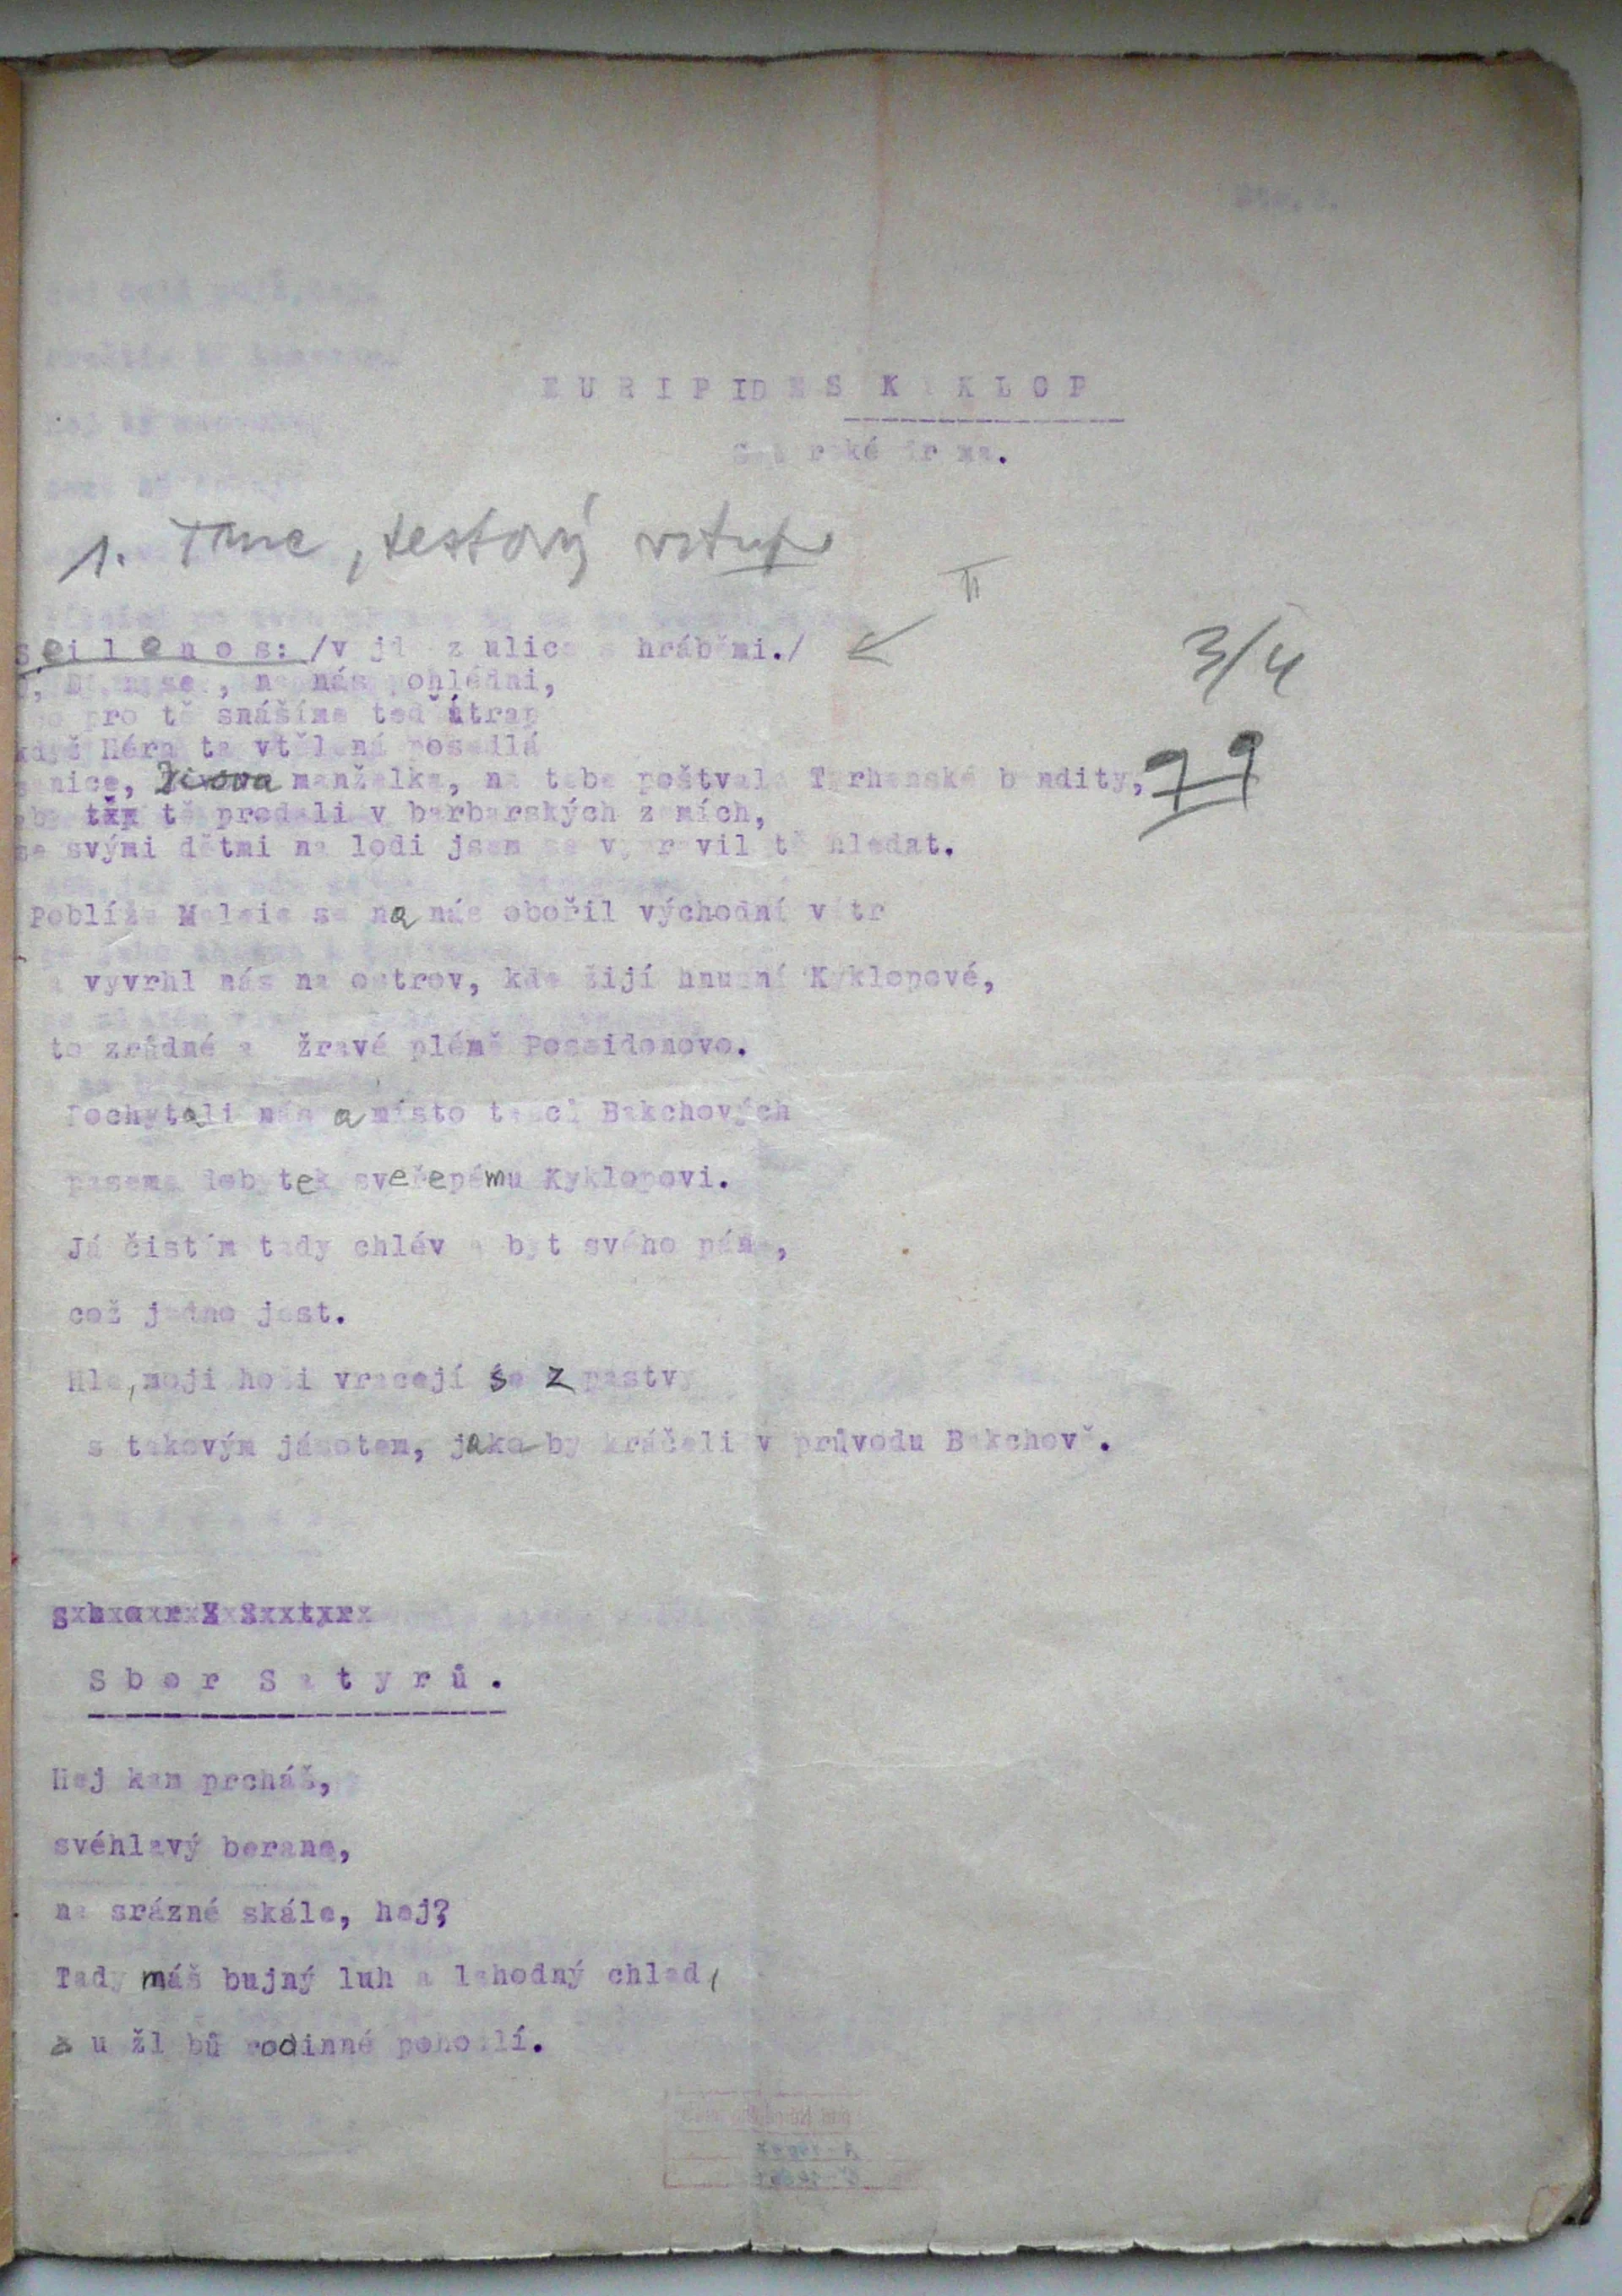 EURIPIDES KYKLOP
Satyrské drama.
1. Tanec, testový vstup
II
Seilenos: /vyjde z ulice s hráběmi./
3/4
na nás pohlédni,
pro tě snášíme teď útrap
když Héra ta vtělená posedlá
manželka, na tebe poštvala Tyrhenské bandity,
aby tě prodali v barbarských zemích,
se svými dětmi na lodi jsem se vypravil tě hledat.
Poblíže Maleie se na nás obořil východní vítr
a vyvrhl nás na ostrov, kde žijí hnusní Kyklopové,
to zrůdné a žravé plémě Poseidonovo.
Pochytali nás a místo tanců Bakchových
paseme dobytek sveřepému Kyklopovi.
Já čistím tady chlév a byt svého pána,
což jedno jest.
Hle, moji hoši vracejí se z pastvy
s takovým jásotem, jako by kráčeli v průvodu Bakchově.
Sbor Satyrů.
Hej kam prcháš,
svéhlavý berane,
na srázné skále, hej?
Tady máš bujný luh a lahodný chlad,
a u žlabů rodinné pohodlí.